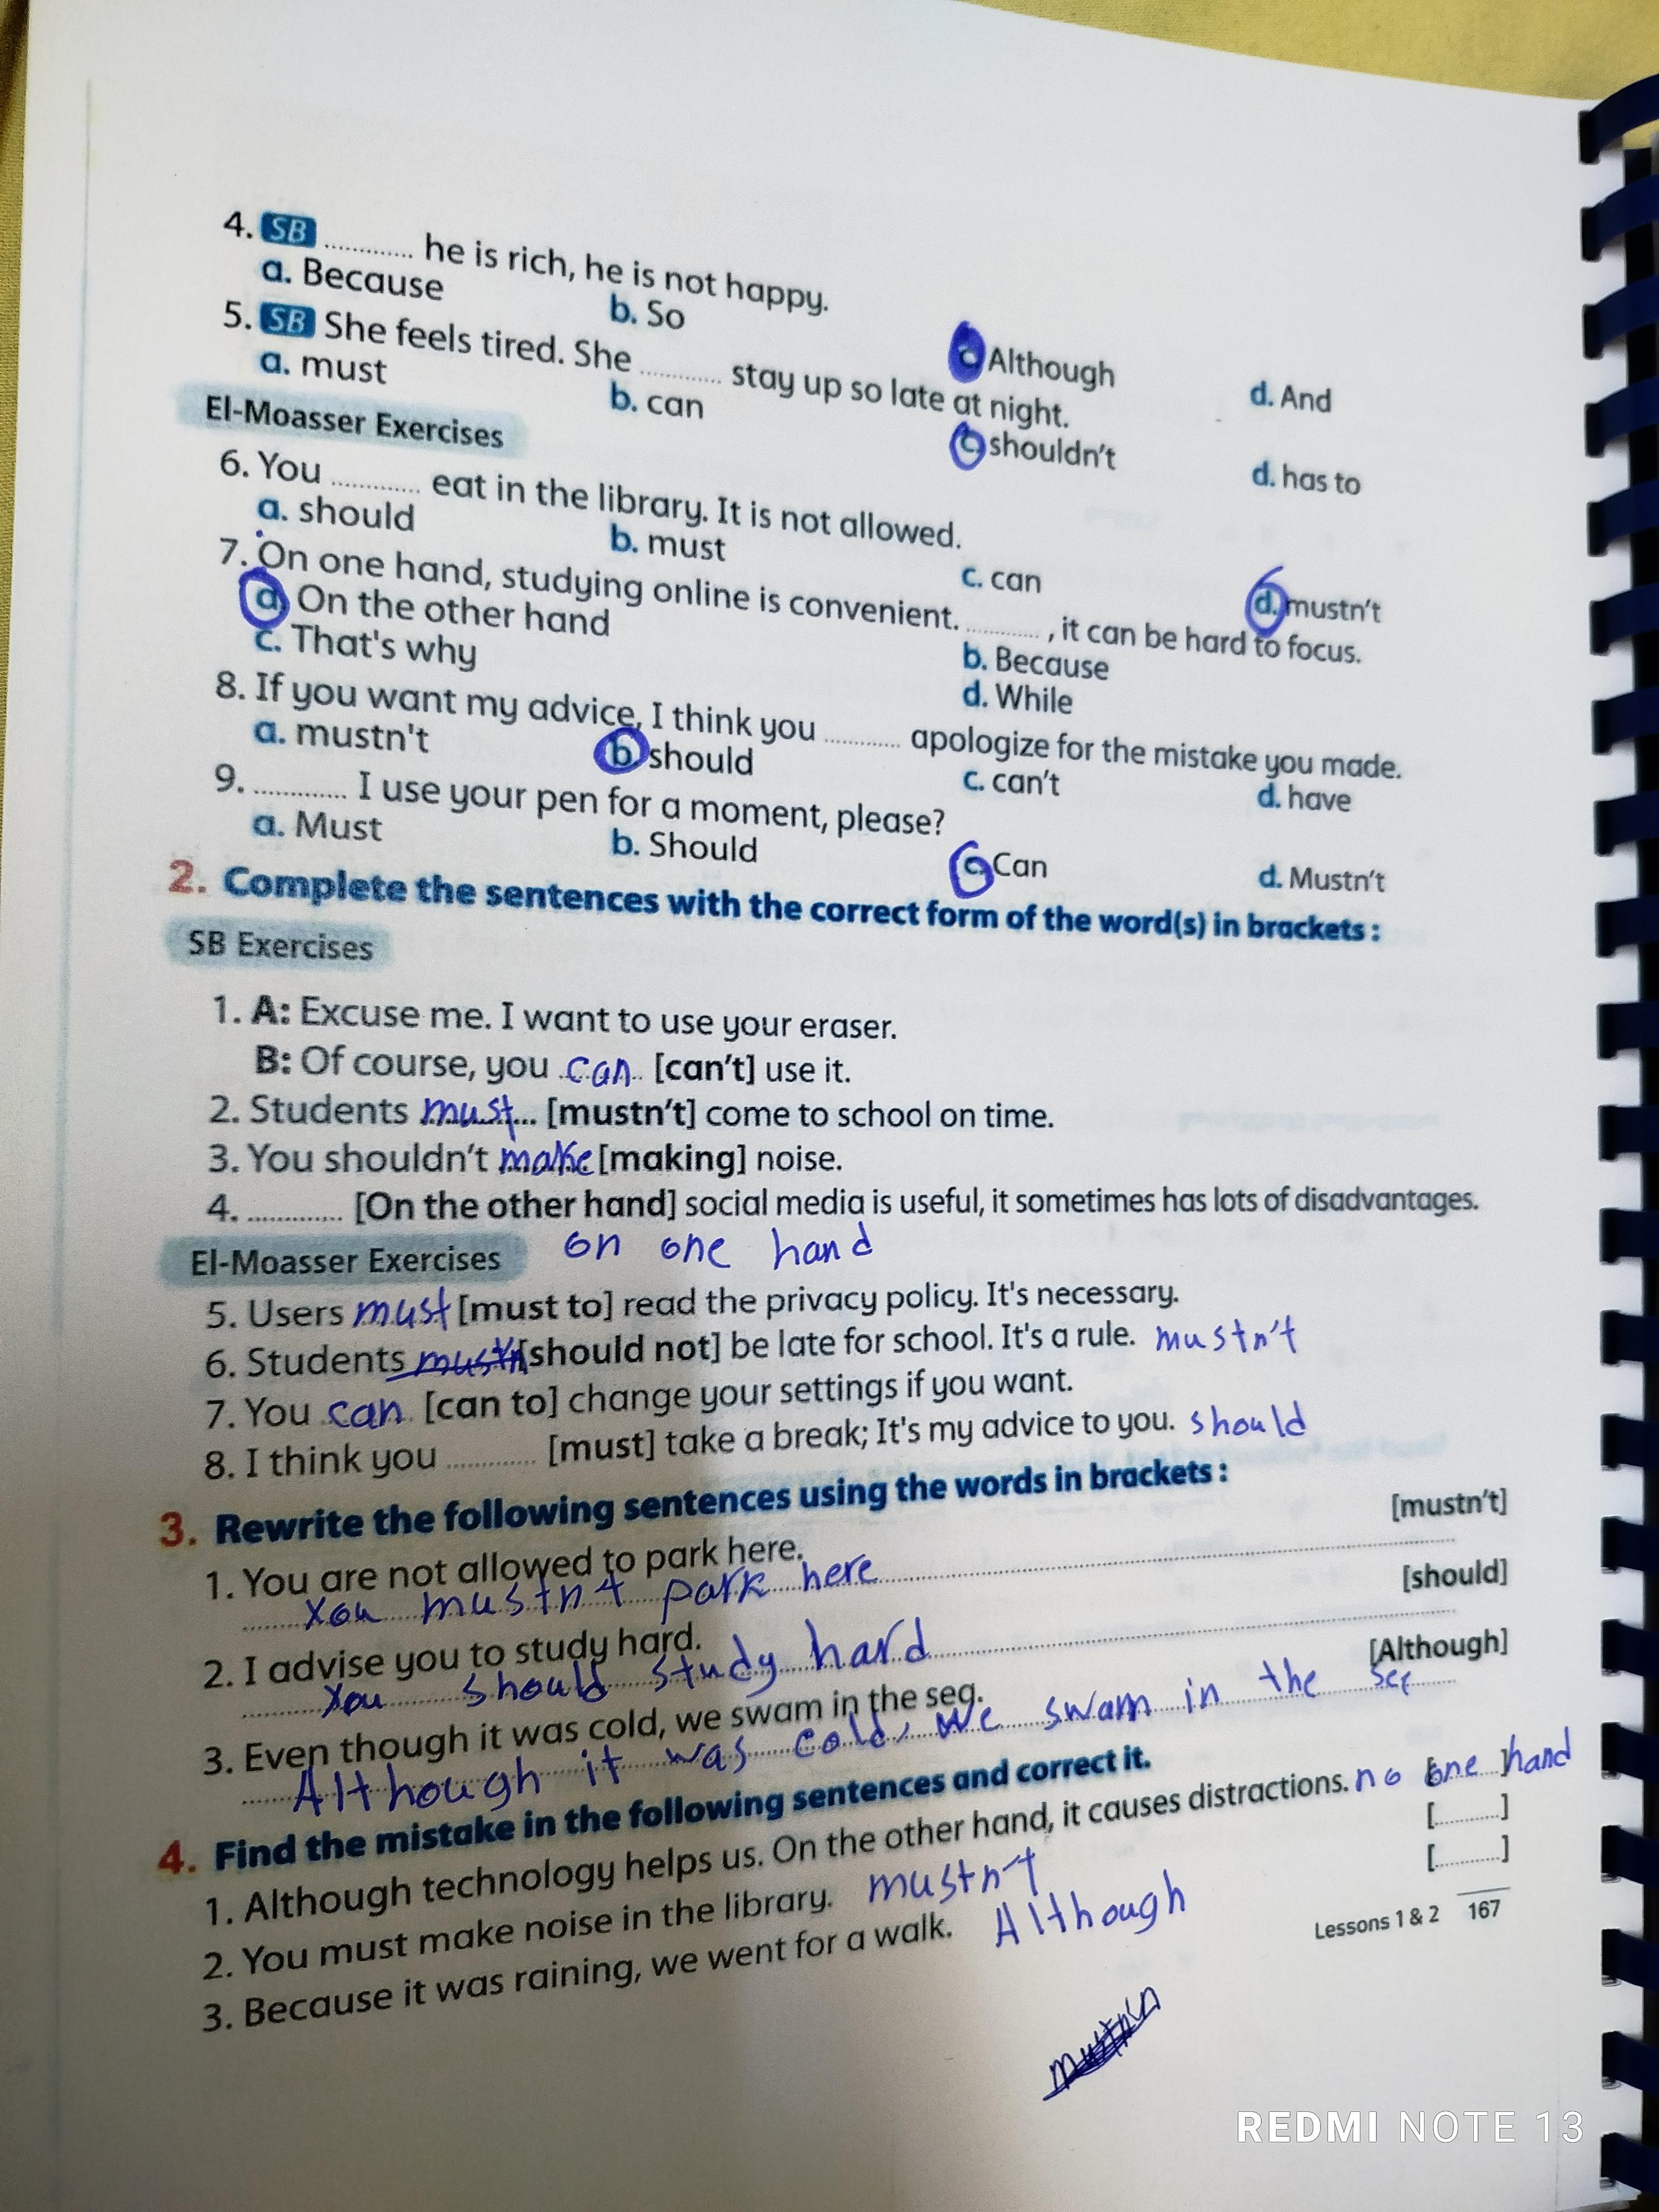 4. SB ............ he is rich, he is not happy.
a. Because b. So c Although d. And
5. SB She feels tired. She ............ stay up so late at night.
a. must b. can c shouldn't d. has to
El-Moasser Exercises
6. You ............ eat in the library. It is not allowed.
a. should b. must c. can d. mustn't
7. On one hand, studying online is convenient. .......... , it can be hard to focus.
a On the other hand b. Because
c. That's why d. While
8. If you want my advice, I think you .......... apologize for the mistake you made.
a. mustn't b. should c. can't d. have
9. ............ I use your pen for a moment, please?
a. Must b. Should c Can d. Mustn't
2. Complete the sentences with the correct form of the word(s) in brackets :
SB Exercises
1. A: Excuse me. I want to use your eraser.
B: Of course, you can [can't] use it.
2. Students must [mustn't] come to school on time.
3. You shouldn't make [making] noise.
4. ............ [On the other hand] social media is useful, it sometimes has lots of disadvantages.
El-Moasser Exercises on one hand
5. Users must [must to] read the privacy policy. It's necessary.
6. Students [should not] be late for school. It's a rule. mustn't
7. You can [can to] change your settings if you want.
8. I think you ............ [must] take a break; It's my advice to you. should
3. Rewrite the following sentences using the words in brackets :
1. You are not allowed to park here. [mustn't]
You mustn't park here
2. I advise you to study hard. [should]
You should study hard
3. Even though it was cold, we swam in the sea. [Although]
Although it was cold, we swam in the
4. Find the mistake in the following sentences and correct it.
1. Although technology helps us. On the other hand, it causes distractions. no one hand [..........]
2. You must make noise in the library. mustn't [..........]
3. Because it was raining, we went for a walk. Although [..........]
Lessons 1 & 2 167
REDMI NOTE 13